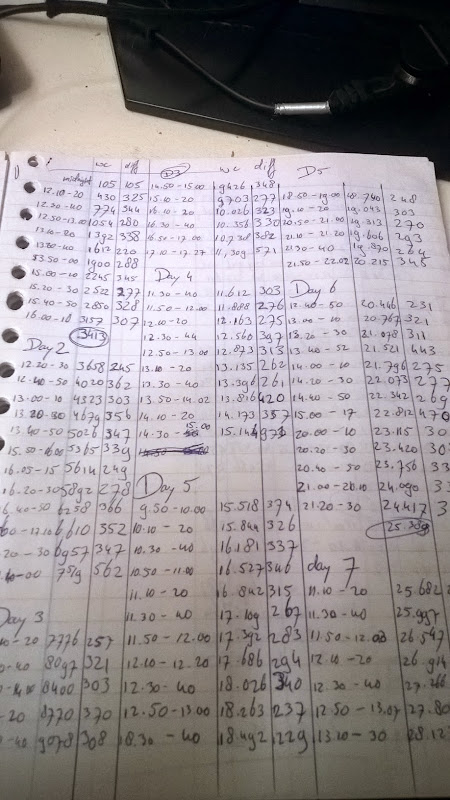 wc diff (D3) wc diff D5
midnight 105 105 14.50-15.00 9426 348
12.10-20 430 325 15.10-20 9703 277 18.50-19.00 248
12.30-40 774 344 16.10-20 10.026 323 19.10-20 19.043 303
12.50-13.00 1054 280 16.30-40 10.356 330 20.50-21.00 19.313 270
13.10-20 1392 338 16.50-17.00 10.738 382 21.10-21.20 19.606 293
13.30-40 1612 220 17.10-17.27 571 21.30-40 19.870 264
13.50-00 1900 288 21.50-22.02 20.215 345
15.00-10 2245 345 Day 4
15.20-30 2522 277 11.30-40 11.612 303 Day 6
15.40-50 2850 328 11.50-12.00 11.888 276 12.40-50 20.446 231
16.00-10 3157 307 12.00-20 12.163 275 13.00-10 20.767 321
3413 12.30-44 12.560 397 13.20-30 21.078 311
Day 2 12.50-13.00 12.873 313 13.40-52 21.521 443
12.20-30 3658 245 13.10-20 13.135 262 14.00-10 21.796 275
12.40-50 4020 362 13.30-40 13.396 261 14.20-30 22.073 277
13.00-10 4323 303 13.50-14.02 13.816 420 14.40-50 22.342 269
13.20-30 4679 356 14.10-20 14.173 357 15.00-17 22.812 470
13.40-50 5026 347 14.30-15.00 15.144 971 20.00-10 23.115 30
15.50-16.00 5365 339 20.20-30 23.420 30
16.05-15 5614 249 Day 5 20.40-50 23.756 33
16.20-30 5892 278 21.00-21.10 24.090 3
16.40-50 6258 366 9.50-10.00 15.518 374 21.20-30 24.417 3
00-17.10 6610 352 10.10-20 15.844 326
20-30 6957 347 10.30-40 16.181 337
00 7519 562 10.50-11.00 16.527 346 day 7
11.10-20 16.842 315 11.10-20 25.682
Day 3 11.30-40 17.109 267 11.30-40 25.997
10-20 7776 257 11.50-12.00 17.392 283 11.50-12.08 26.547
40 8097 321 12.10-12.20 17.686 294 12.10-20 26.914
8400 303 12.30-40 18.026 340 12.30-40
20 8770 370 12.50-13.00 18.263 237 12.50-13.07 27.80
40 9078 308 18.30-40 18.492 229 13.10-30 28.12